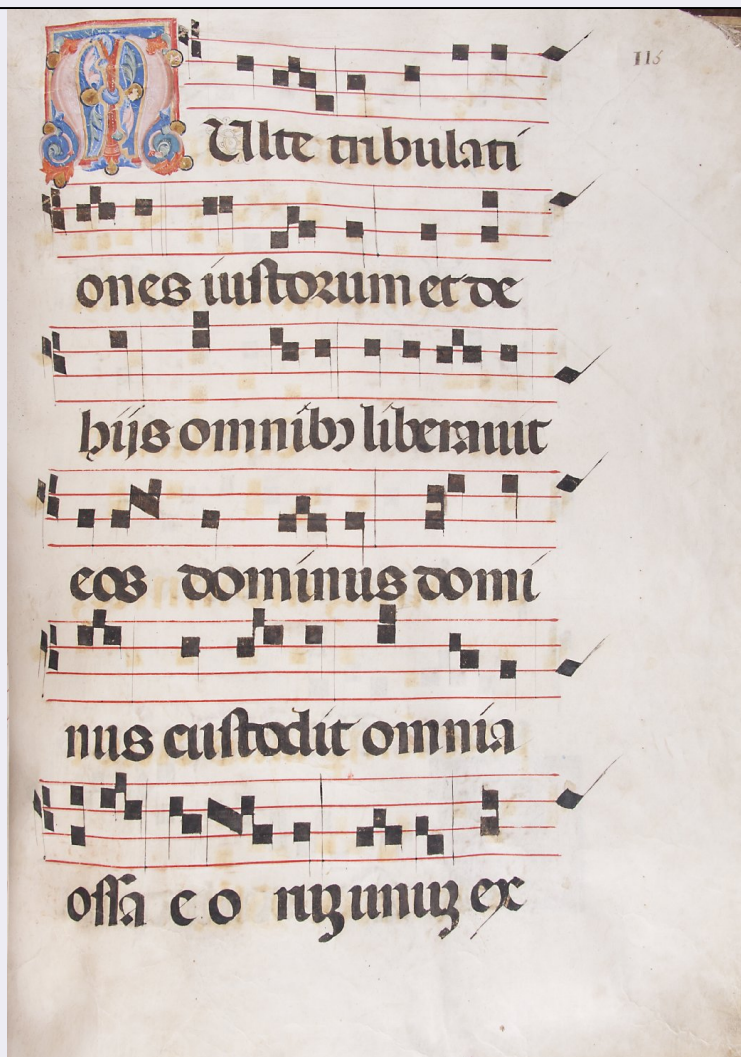 115
MUlte tribulati
ones iustorum et de
hijs omnibꝰ liberauit
eos dominus domi
nus custodit omnia
ossa eoꝝ unuꝫ ex